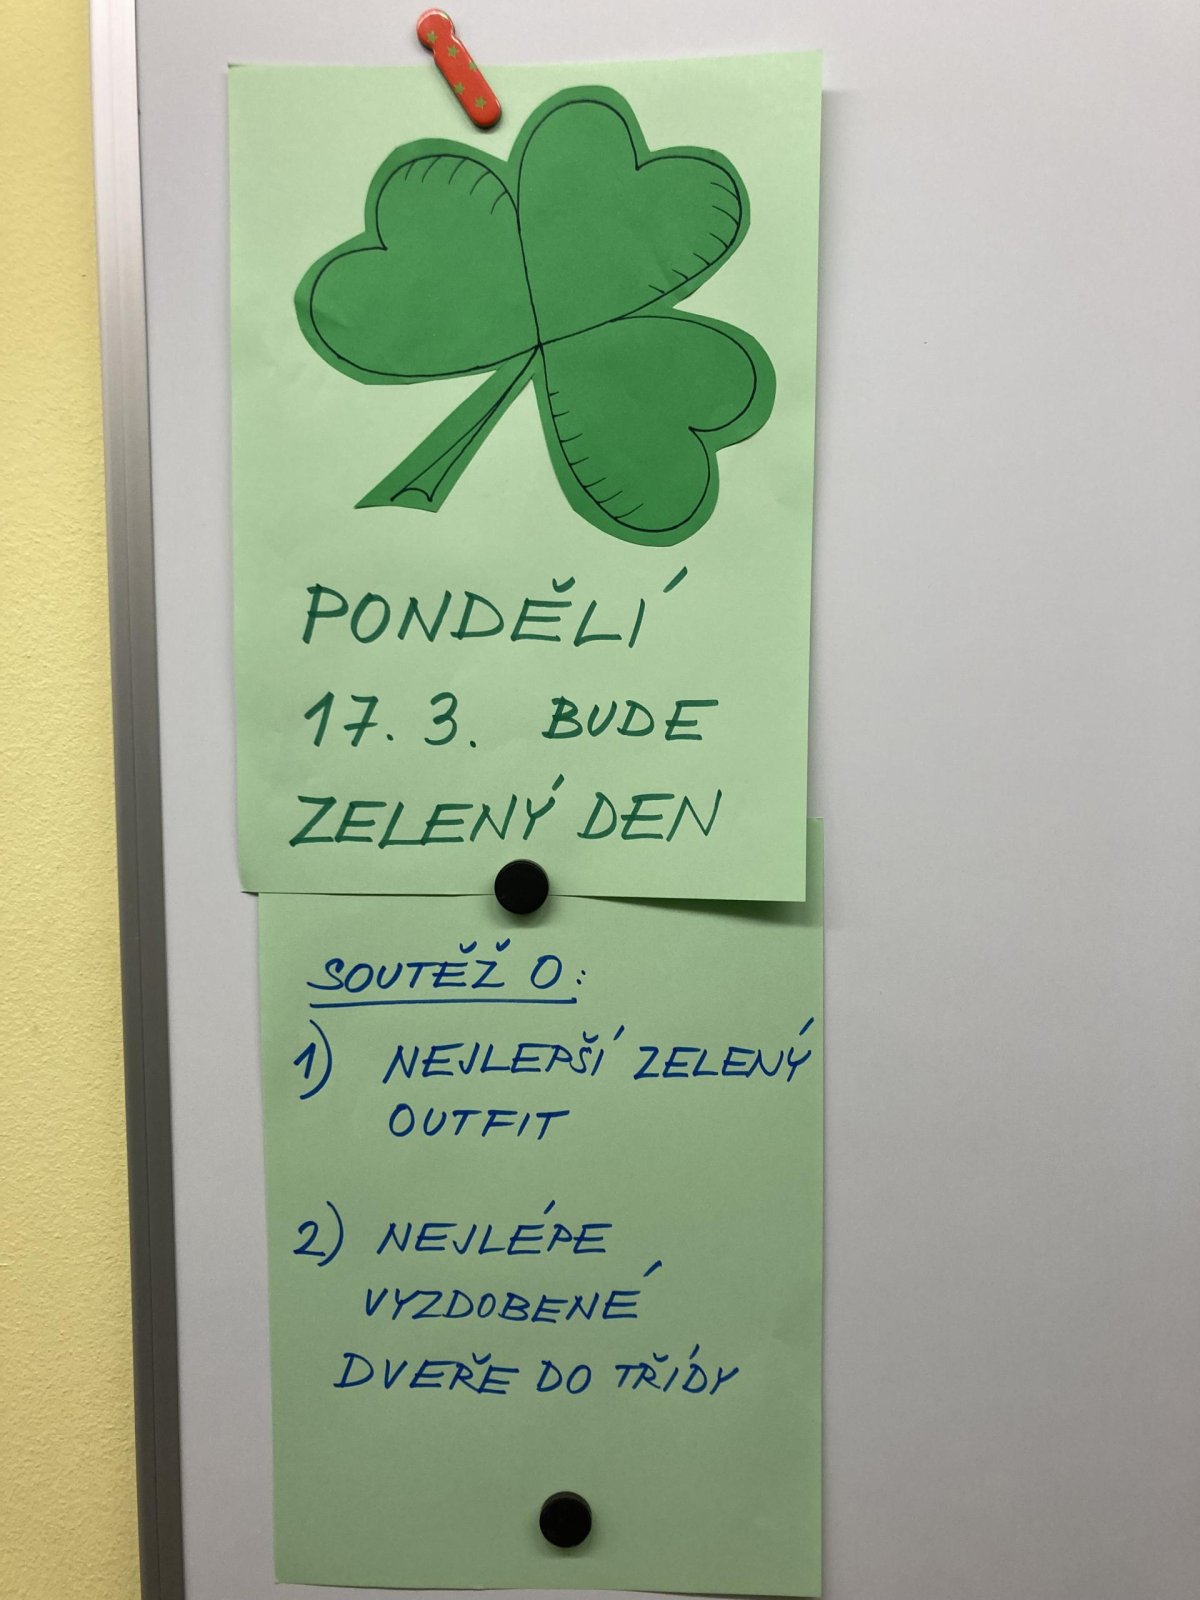 PONDĚLÍ
17. 3. BUDE
ZELENÝ DEN
SOUTĚŽ O:
1) NEJLEPŠÍ ZELENÝ
OUTFIT
2) NEJLÉPE
VYZDOBENÉ
DVEŘE DO TŘÍDY